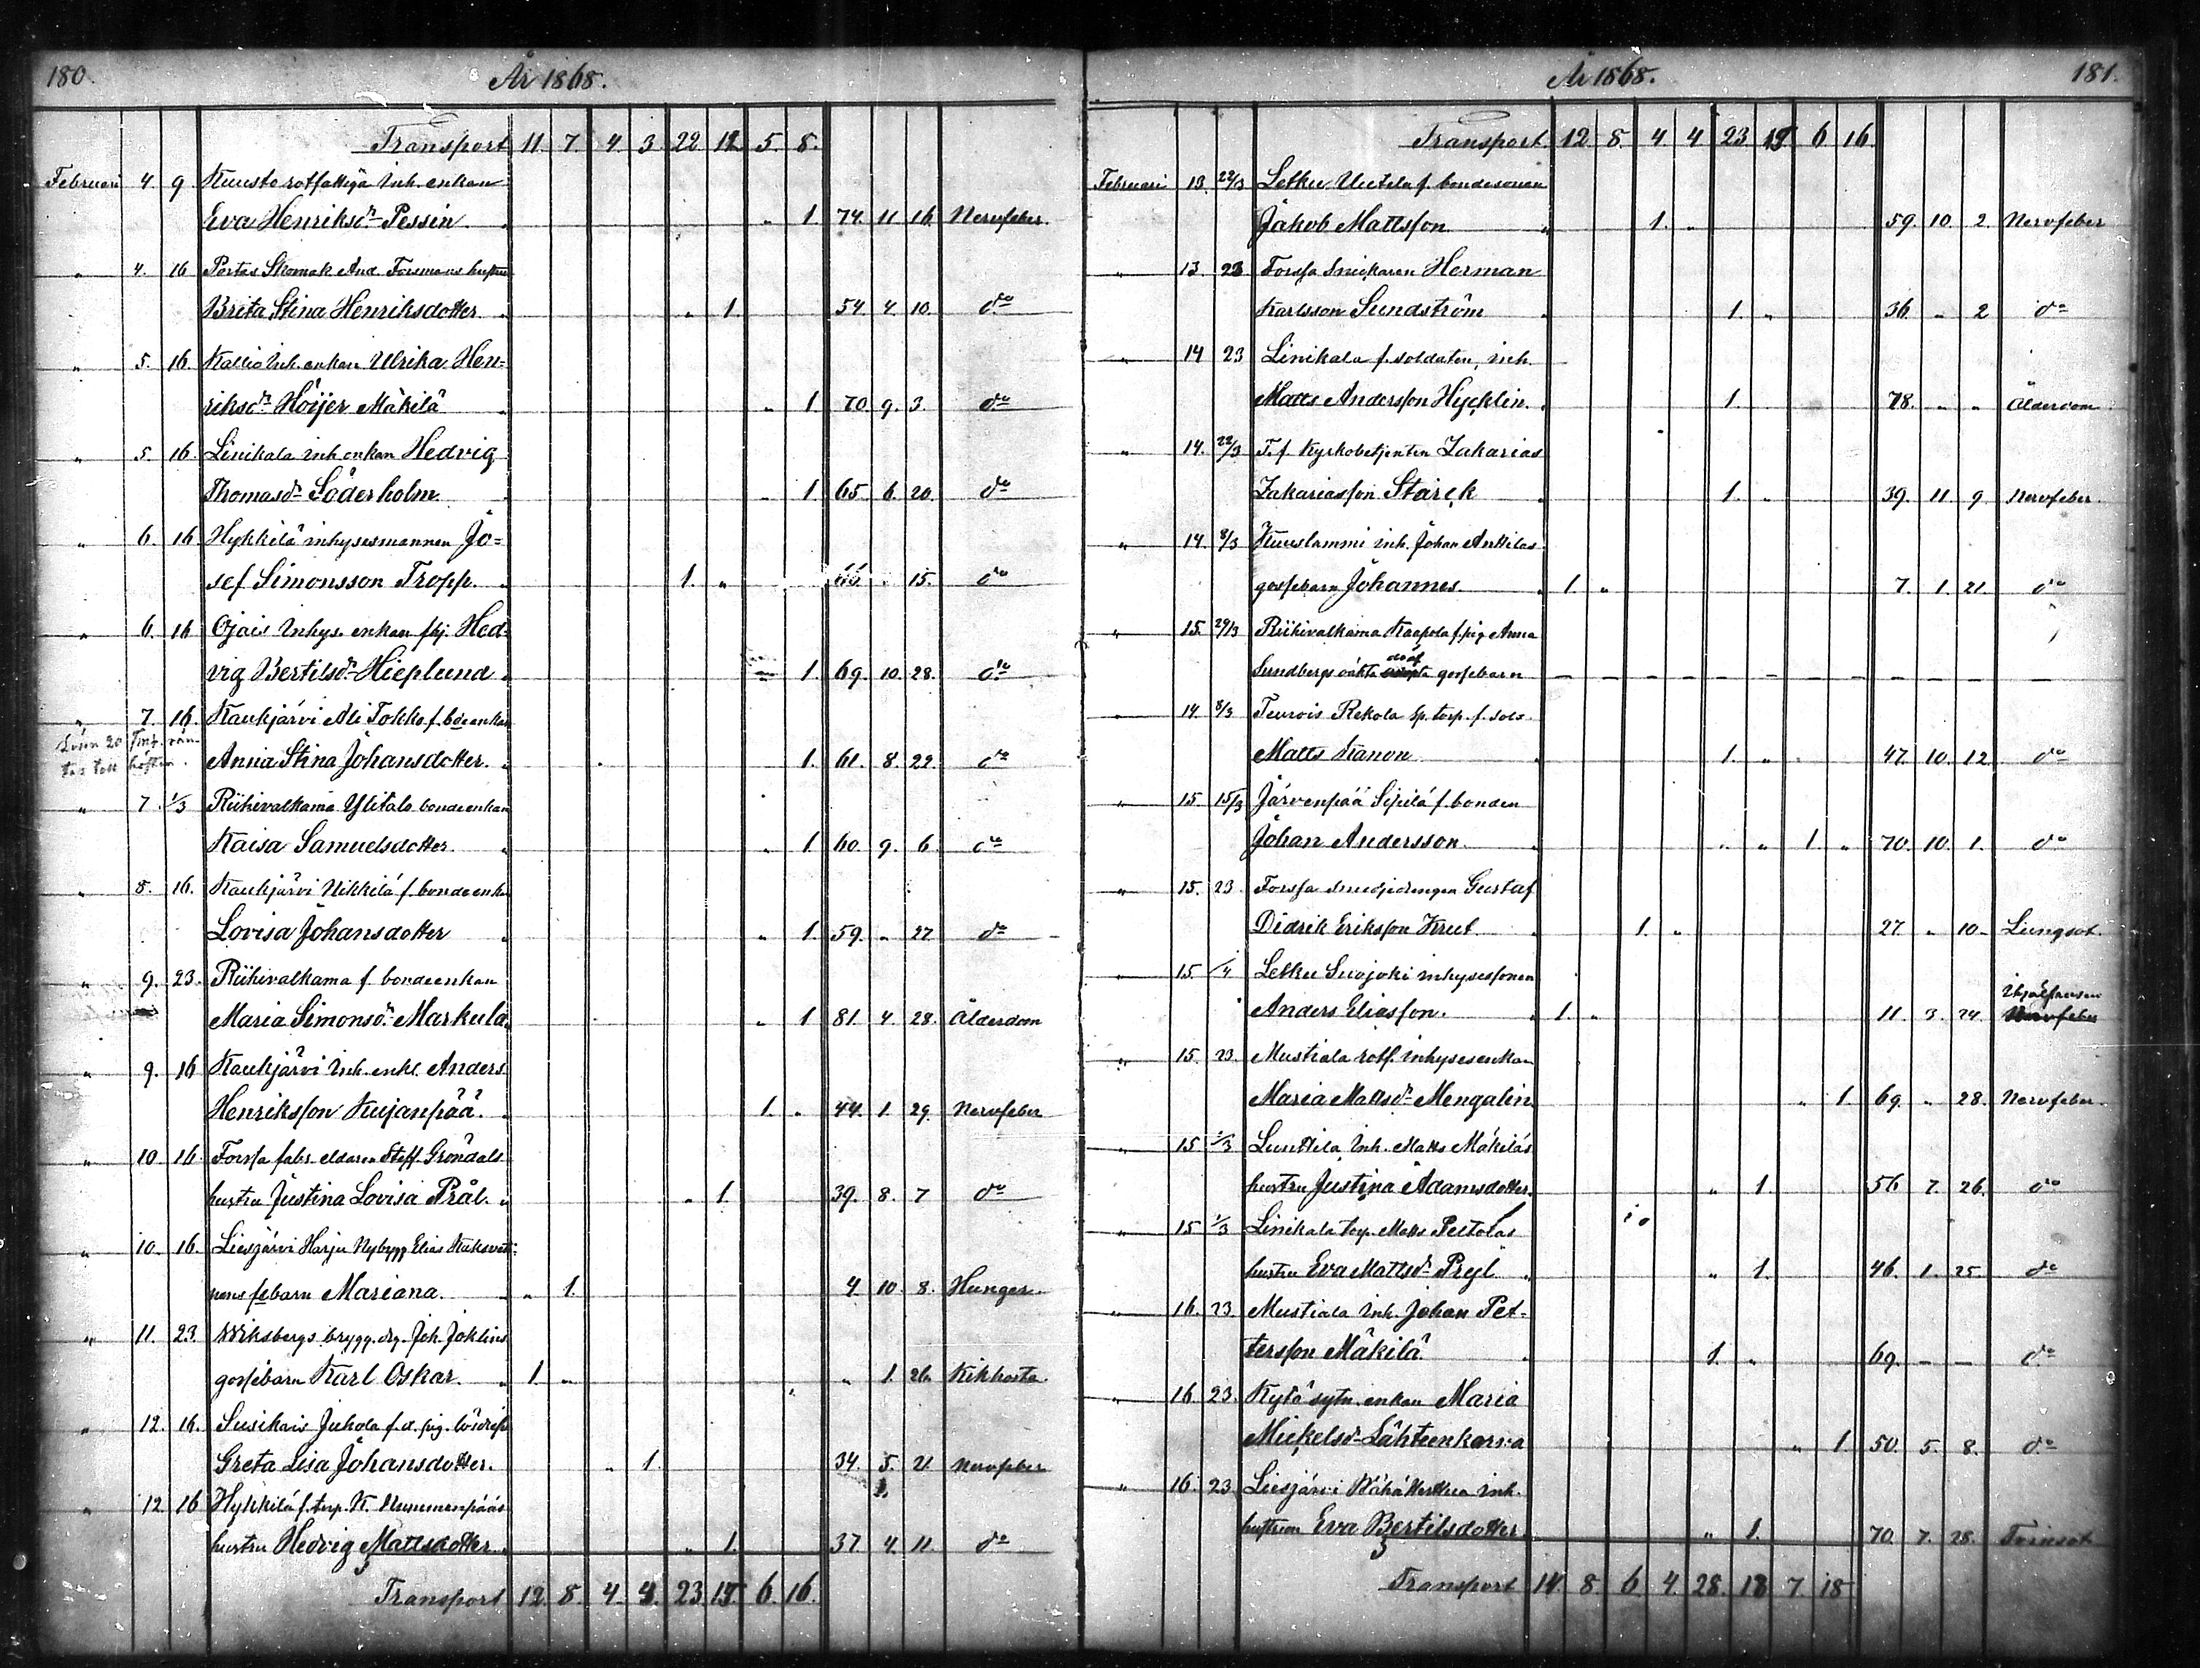 180.
År 1868.
Transport 11. 7. 4. 3. 22. 12. 5. 8.
Februari 4 9 Kuusto rotfattiga inh. enkan
Eva Henriksdr Pessin „ 1. 74. 11 16. Nervfeber.
„ 4. 16 Portas Skomak. And. Forsmans hustru
Brita Stina Henriksdotter „ 1. 54 4 10. do
„ 5. 16. Kallio inh. enkan Ulrika Hen-
riksdr Höijer Mäkilä „ 1. 70. 9. 3. do
„ 5. 16. Linikala inh. enkan Hedvig
Thomasdr Söderholm „ 1 65. 6. 20. do
„ 6. 16 Hykkilä inhysesmannen Jo-
sef Simonsson Tropp. 1. „ 66. „ 15. do
„ 6. 16 Ojais inhys. enkan Hed-
vig Bertilsdr Hieplund „ 1 69. 10. 28. do
„ 7. 16. Kaukjärvi Ali Tokko f. bdeenkan
Anna Stina Johansdotter. 1. 61. 8. 22. do
„ 7. 1/3 Riihivalkama Ylitalo bondeenkan
Kaisa Samuelsdotter. „ 1. 60. 9. 6. do
„ 8. 16. Kaukjärvi Nikkilä f. bondeenka
Lovisa Johansdotter „ 1. 59. „ 27 do
„ 9. 23. Riihivalkama f. bondeenkan
Maria Simonsdr Markula. „ 1 81. 4. 28. Ålderdom
„ 9. 16 Kaukjärvi inh. enkl. Anders
Henriksson Kujanpää. 1. „ 44. 1. 29. Nervfeber
„ 10 16. Forssa fabr. eldaren Steff. Gröndals
hustru Justina Lovisa Prål. „ 1. 39. 8. 7 do
„ 10. 16. Liesjärvi Harju Nybygg. Elias
nens febarn Mariana. „ 1. 4. 10. 8. Hunger.
„ 11. 23. Wiksbergs brygg. drg. Joh. Joklins
gossebarn Karl Oskar. 1. „ „ 1. 26. Kikhosta.
„ 12. 16. Susikais Jukola f. d. pig. lösdrif
Greta Lisa Johansdotter. „ 1. 34. 5. 21. Nervfeber
„ 12 16 Hykkilä f. torp. K. Nummenpääs
hustru Hedvig Mattsdotter. „ 1. 37. 4. 11. do
Transport 12. 8. 4. 4. 23. 15. 6. 16.
År 1868.
181.
Transport 12. 8. 4 4 23 15 6 16
Februari 13. 22/3 Letku Uutela f. bondesonen
Jakob Mattsson 1. „ 59. 10. 2. Nervfeber
„ 13. 23 Forssa Snickaren Herman
Karlsson Sundström 1. „ 36. „ 2 do
„ 14 23 Linikala f. soldaten, inh.
Matts Andersson Hycklin. 1. 78. „ „ Ålderdom
„ 14. 22/3 T. f. Kyrkobetjenten Zakarias
Zakariasson Starck 1. „ 39. 11. 9 Nervfeber.
„ 14. 8/3 Kuuslammi inh. Johan Anttilas
gossebarn Johannes. 1. „ 7. 1. 21. do
„ 15. 29/3 Riihivalkama Kaapola f. pig Anna
Sundbergs oäkta döf gossebarn
„ 14. 8/3 Teurois Rekola sp. torp. f. sold.
Matts Kanon 1. „ 47. 10. 12. do
„ 15. 15/3 Järvenpää Sipilä f. bonden
Johan Andersson „ „ 1. „ 70. 10. 1. do
„ 15. 23. Forssa smedjedrengen Gustaf
Didrik Eriksson Krut. 1. „ 27 „ 10. Lungsot.
„ 15. /4 Letku Suojoki inhysessonen
Anders Eliasson. 1. „ 11. 3. 24.
„ 15. 23. Mustiala rotf. inhysesenkan
Maria Mattsdr Mengalin „ 1. 69. „ 28. Nervfeber.
„ 15 1/3 Lunttila inh. Matts Mäkiläs
hustru Justina Adamsdotter. „ 1. 56 7. 26. do
„ 15 1/3 Linikala torp. Matts Peltolas
hustru Eva Mattsdr Prejl „ 1. 46. 1. 25. do
„ 16. 23. Mustiala inh. Johan Pet-
tersson Mäkilä 1. „ 69. – – do
„ 16 23. Kytö sytn. enkan Maria
Mickelsdr Lähteenkorva „ 1. 50. 5. 8. do
„ 16. 23 Liesjärvi inh.
hustrun Eva Bertilsdotter „ 1. 70. 7. 28. Tvinsot
Transport 14. 8. 6. 4 28. 18 7. 18